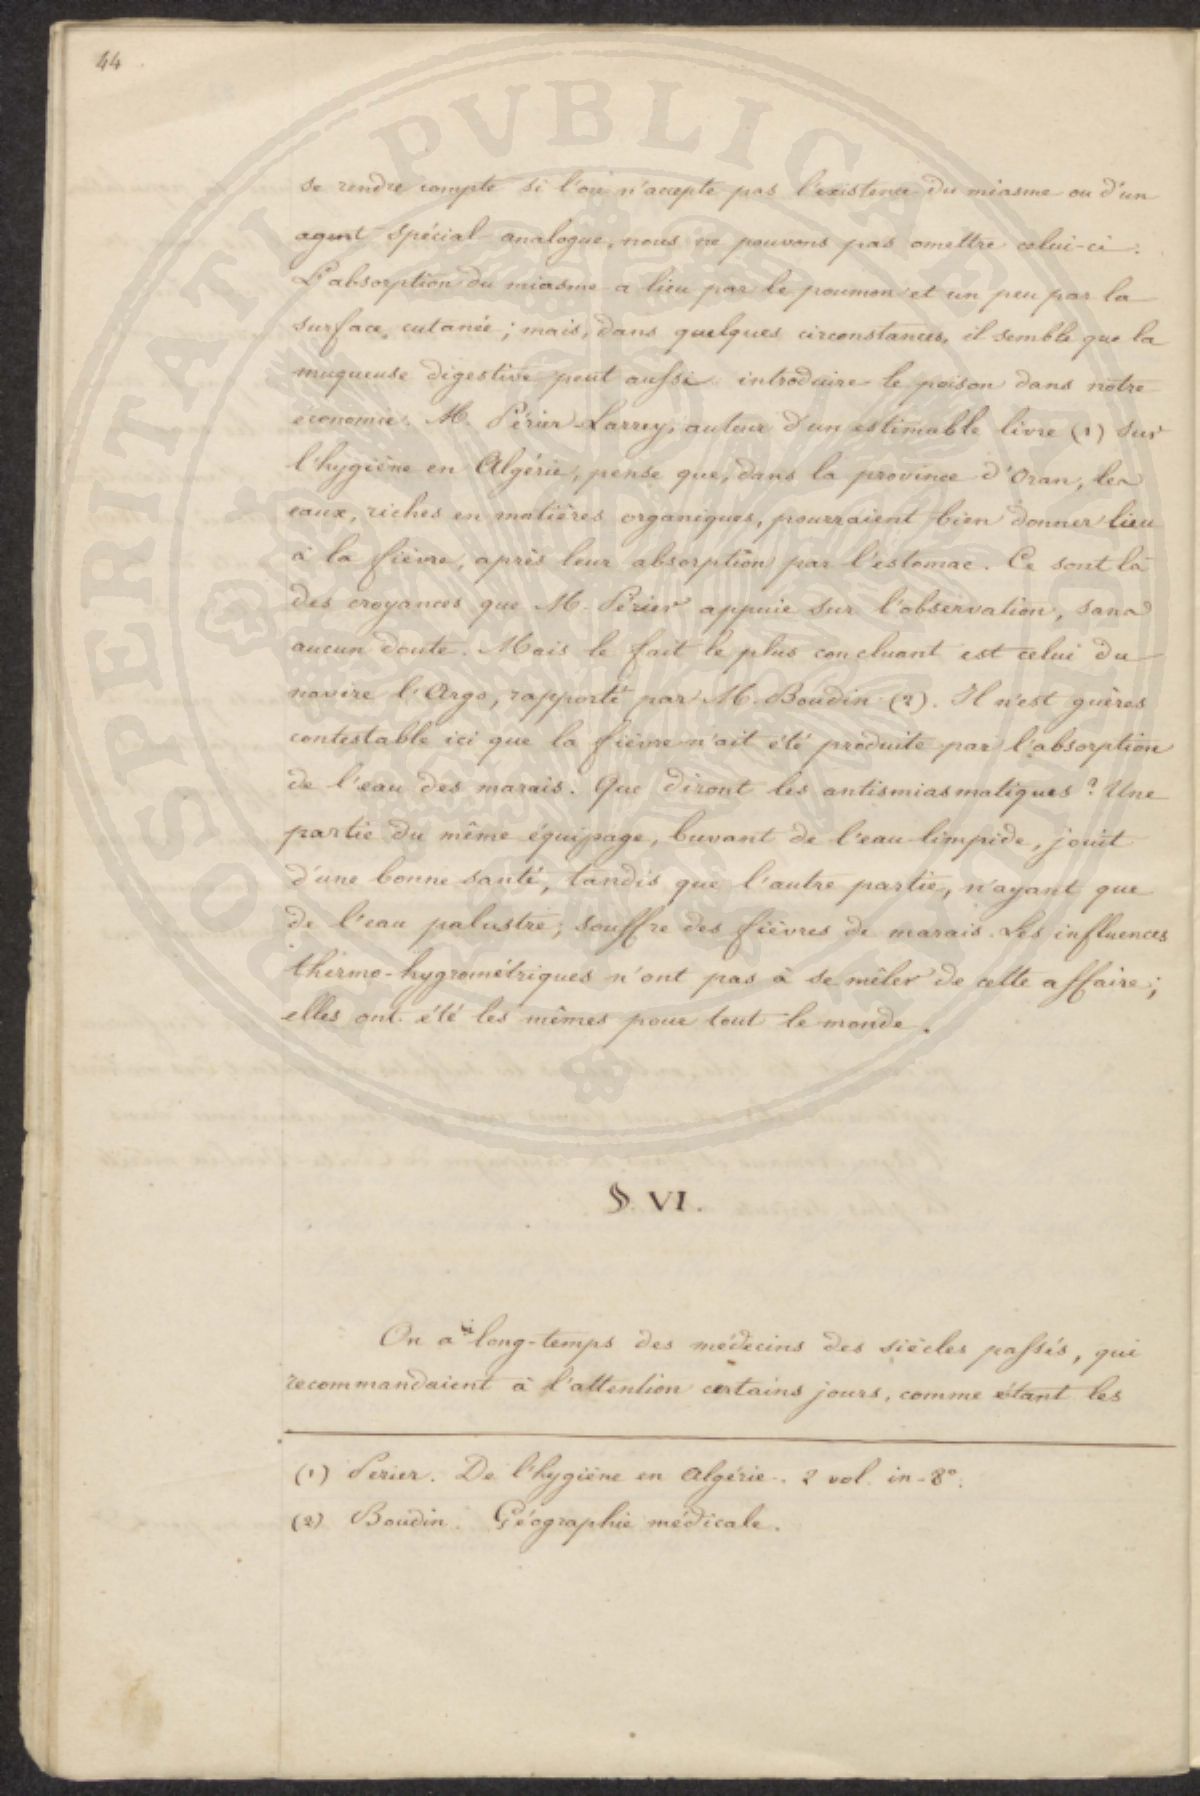 44
PROSPERITATI PVBLICAE
se rendre compte si l'on n'accepte pas l'existence du miasme ou d'un
agent spécial analogue, nous ne pouvons pas omettre celui-ci.
L'absorption du miasme a lieu par le poumon et un peu par la
surface cutanée; mais, dans quelques circonstances, il semble que la
muqueuse digestive peut aussi introduire le poison dans notre
économie. M. Périer Larrey, auteur d'un estimable livre (1) sur
l'hygiène en Algérie, pense que, dans la province d'Oran, les
eaux, riches en matières organiques, pourraient bien donner lieu
à la fièvre, après leur absorption par l'estomac. Ce sont là
des croyances que M. Périer appuie sur l'observation, sans
aucun doute. Mais le fait le plus concluant est celui du
navire l'Argo, rapporté par M. Boudin (2). Il n'est guères
contestable ici que la fièvre n'ait été produite par l'absorption
de l'eau des marais. Que diront les antismiasmatiques? Une
partie du même équipage, buvant de l'eau limpide, jouit
d'une bonne santé, tandis que l'autre partie, n'ayant que
de l'eau palustre, souffre des fièvres de marais. Les influences
thermo-hygrométriques n'ont pas à se mêler de cette affaire;
elles ont été les mêmes pour tout le monde.
§. VI.
On a ri long-temps des médecins des siècles passés, qui
recommandaient à l'attention certains jours, comme étant les
(1) Perier. De l'hygiène en Algérie. 2 vol. in-8°.
(2) Boudin. Géographie médicale.